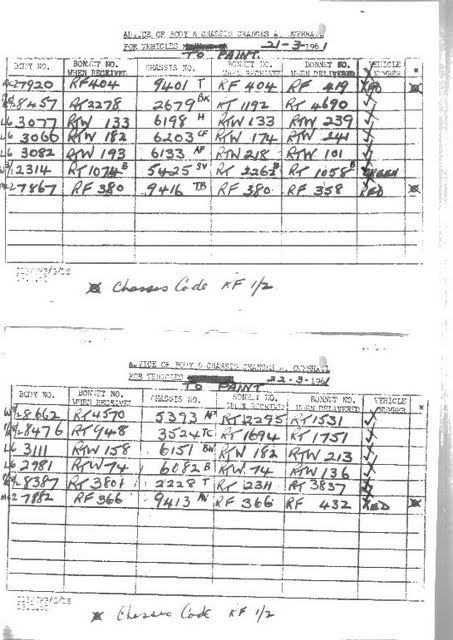 ADVICE OF BODY & CHASSIS CHANGES A.
FOR VEHICLES TO PAINT 21-3-1961
BODY NO. BONNET NO. WHEN RECEIVED CHASSIS NO. BONNET NO. WHEN RECEIVED BONNET NO. WHEN DELIVERED VEHICLE NUMBER *
27920 RF 404 9401 T RF 404 RF 419 RED
8457 RT 2278 2679 BK RT 1192 RT 4690 ✓
L6 3077 RTW 133 6198 H RTW 133 RTW 239 ✓
L6 3060 RTW 182 6203 CF RTW 174 RTW 241 ✓
L6 3082 RTW 193 6133 AP RTW 218 RTW 101 ✓
2314 RT 1074 B 5425 SV RT 2262 B RT 1058 B GREEN
27867 RF 380 9416 TB RF 380 RF 358 RED
Chassis Code RF 1/2
ADVICE OF BODY & CHASSIS CHANGES A.
FOR VEHICLES TO PAINT 22-3-1961
BODY NO. BONNET NO. WHEN RECEIVED CHASSIS NO. BONNET NO. WHEN RECEIVED BONNET NO. WHEN DELIVERED VEHICLE NUMBER *
8662 RT 4570 5373 AP RT 2295 RT 1531 ✓
8476 RT 948 3524 TC RT 1694 RT 1751 ✓
L6 3111 RTW 158 6151 BW RTW 182 RTW 213 ✓
L6 2981 RTW 74 6082 B RTW 74 RTW 136 ✓
8387 RT 3801 2228 T RT 2311 RT 3837
27882 RF 366 9413 AV RF 366 RF 432 RED
Chassis Code RF 1/2